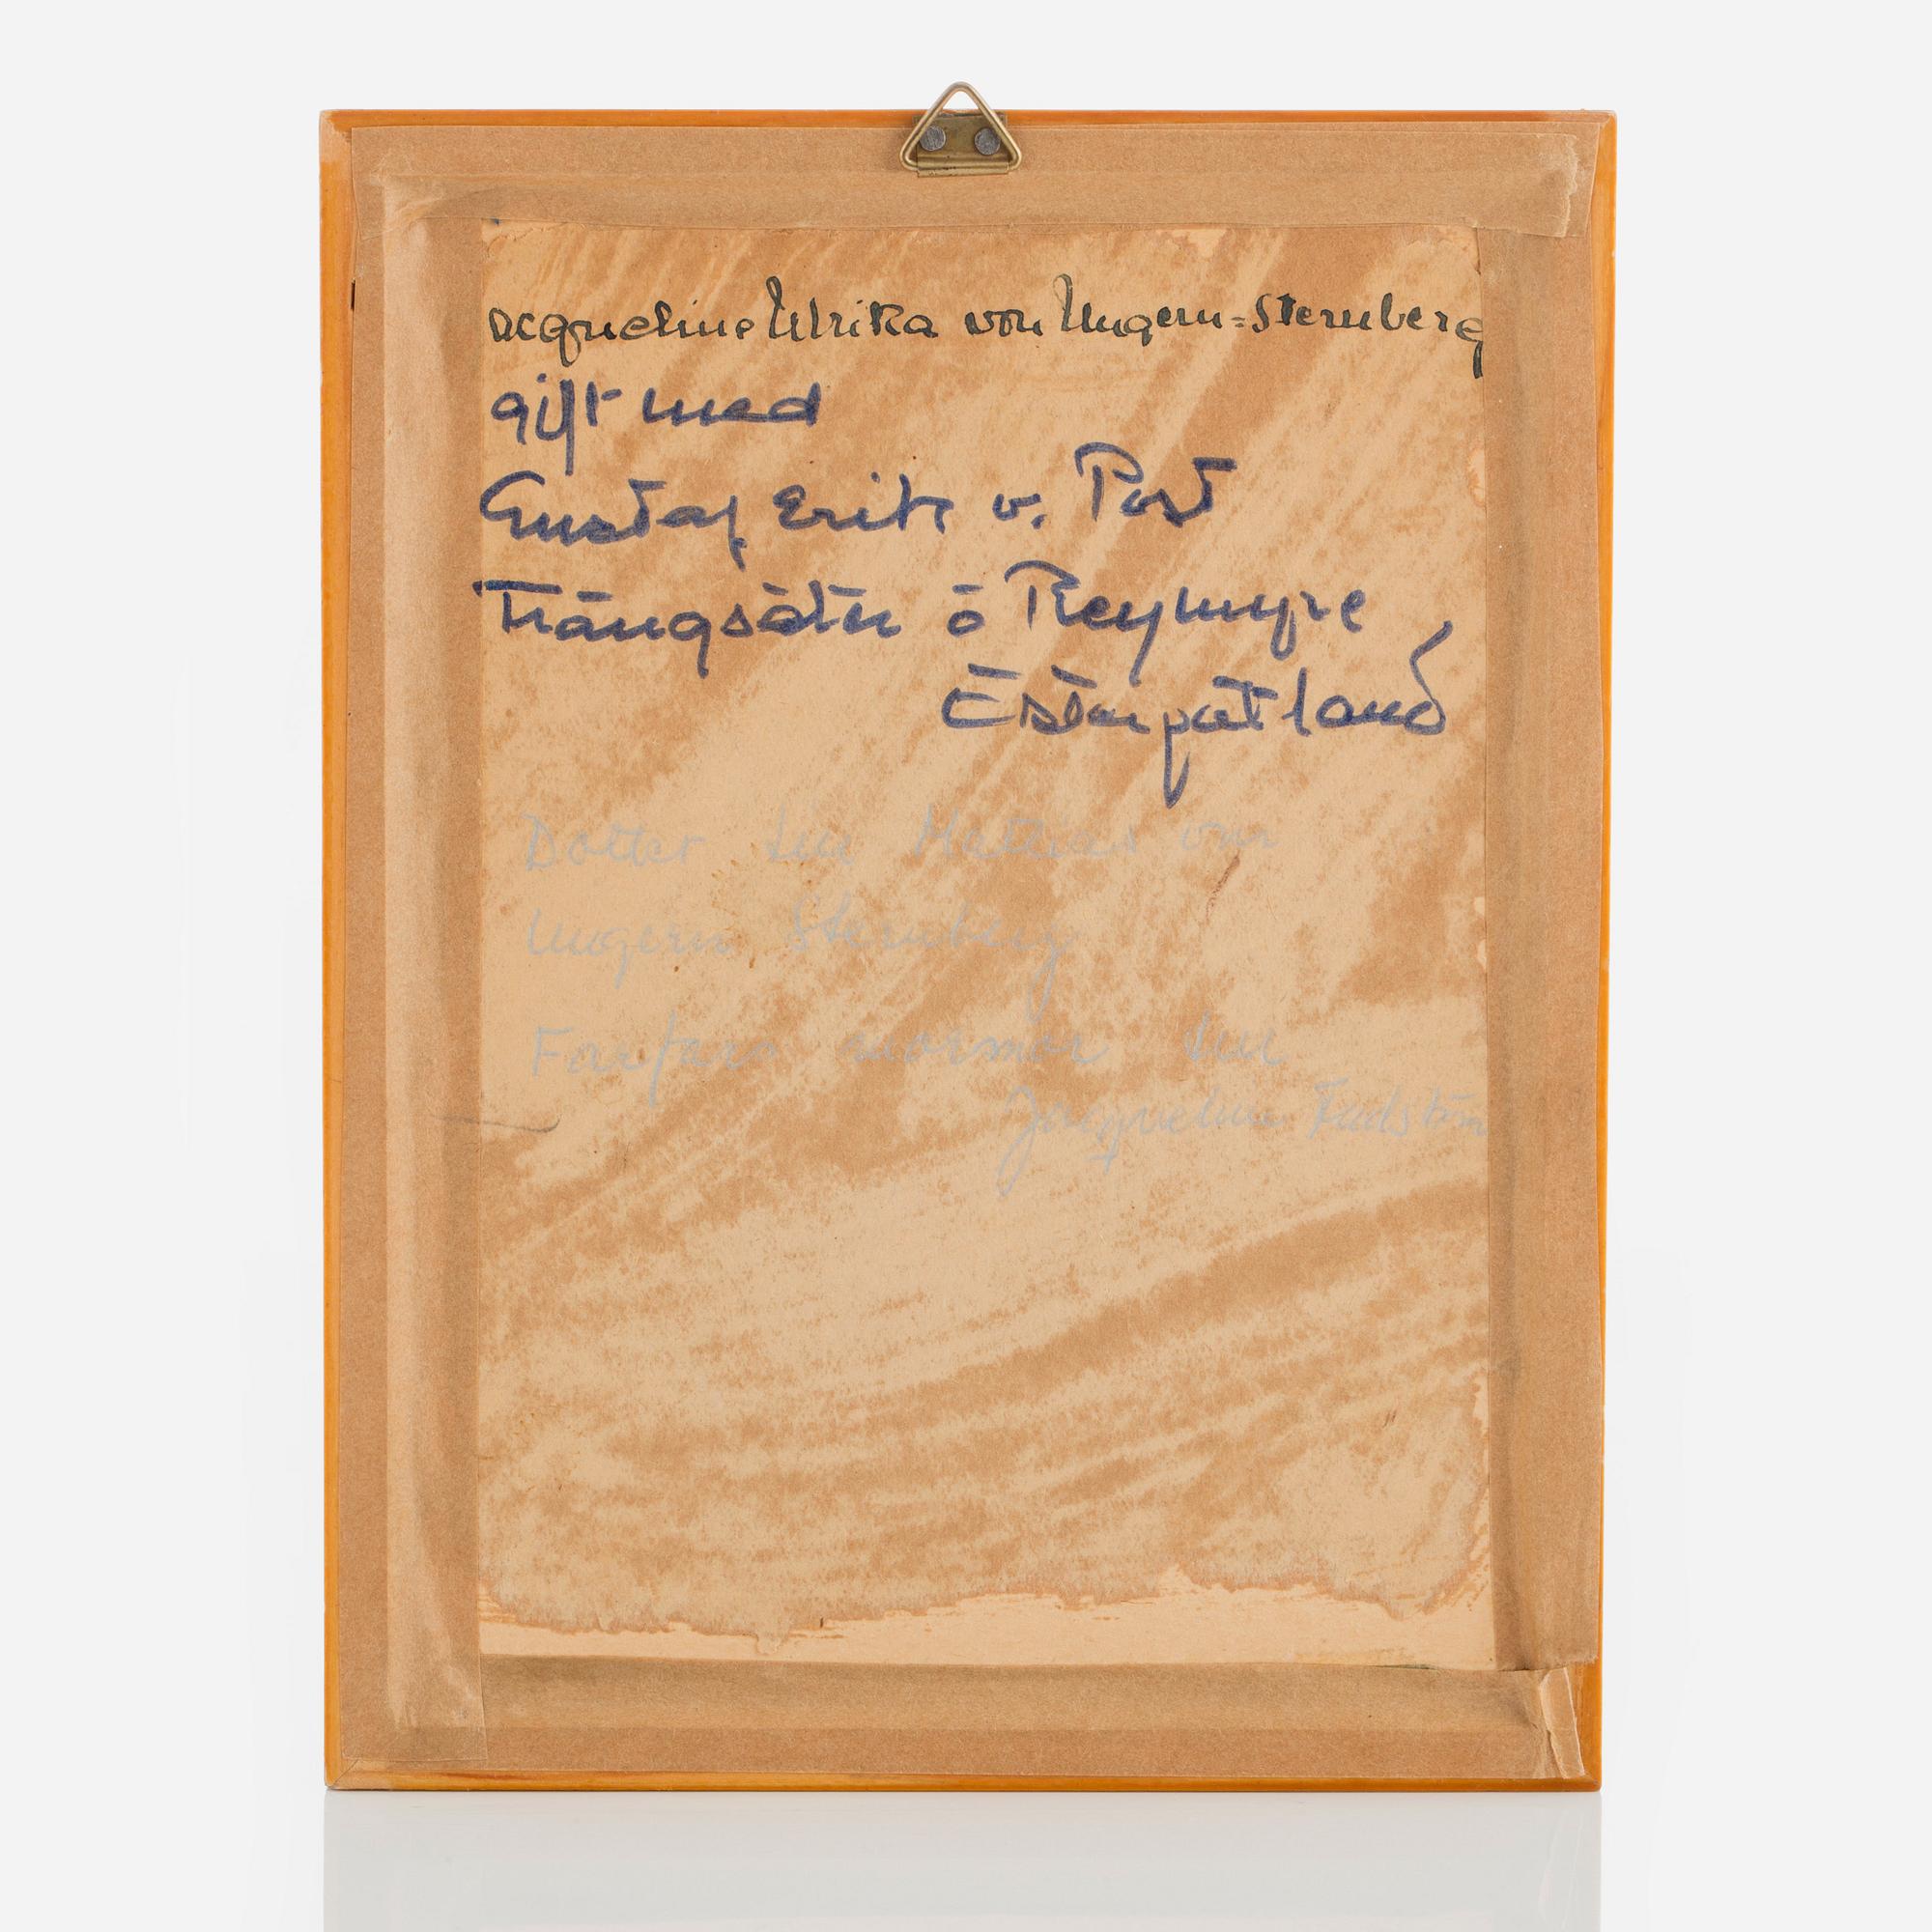 acqueline Ulrika von Ungern=Sternberg
gift med
Gustaf Erik v. Post
Trängsäter ö Reymyre
Östergötland
Dotter till Mattias von
Ungern Sternberg
Farfars mormor till
Jacqueline